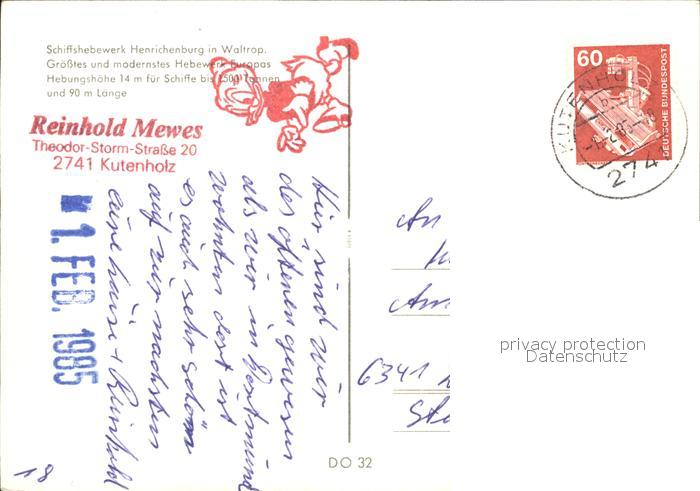 Schiffshebewerk Henrichenburg in Waltrop.
Größtes und modernstes Hebewerk Europas
Hebungshöhe 14 m für Schiffe bis 1500 Tonnen
und 90 m Länge
Reinhold Mewes
Theodor-Storm-Straße 20
2741 Kutenholz
1. FEB. 1985
Hier sind wir
des öfteren gewesen
als wir in Dortmund
wohnten dort ist
es auch sehr schön
auf zur nächsten
eure + Reinhold
18
DO 32
60
DEUTSCHE BUNDESPOST
KUTENHOLZ
274
An
Am
6341
privacy protection
Datenschutz